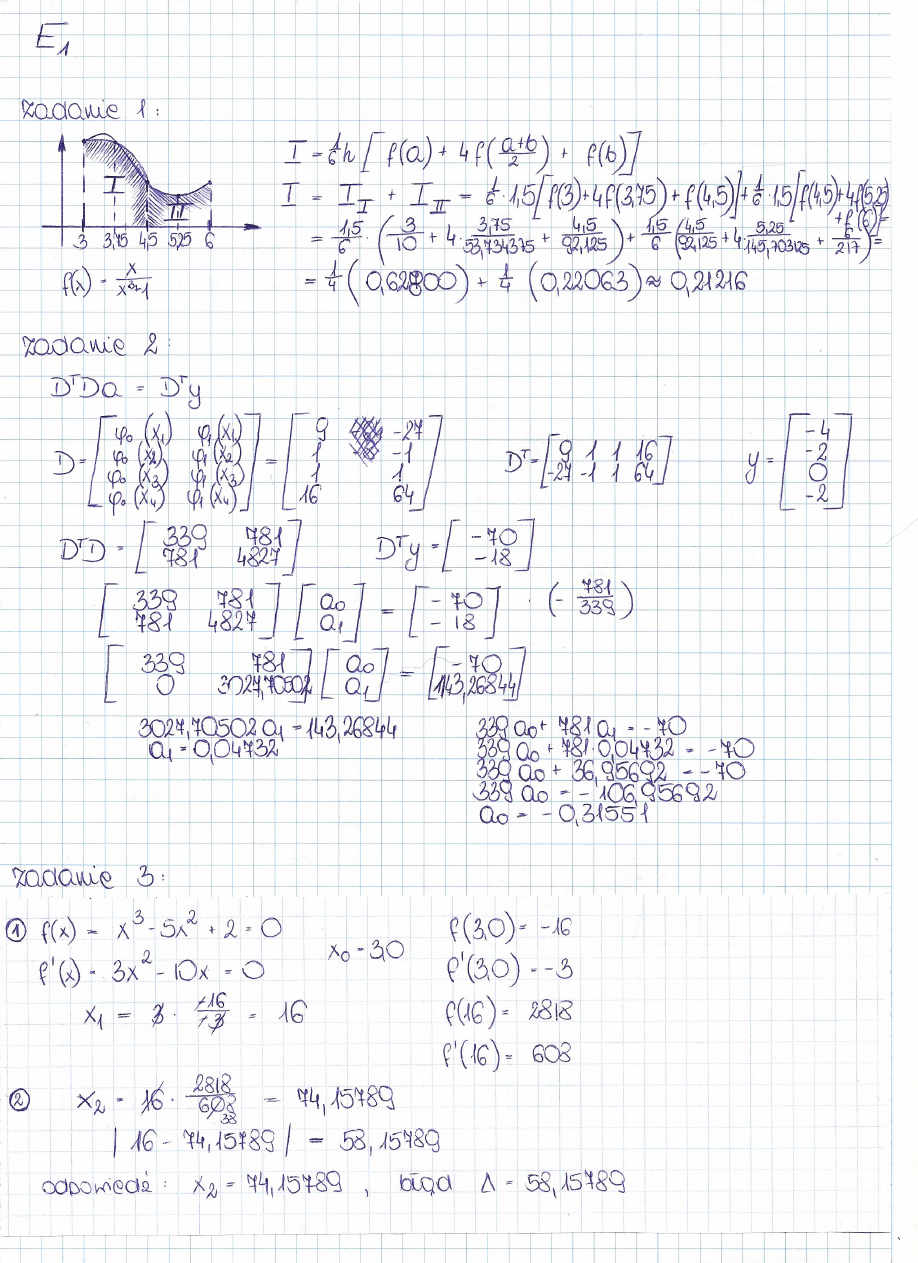 E₁
Zadanie 1:
I = 1/6 h [ f(a) + 4f((a+b)/2) + f(b) ]
I = I_I + I_II = 1/6 · 1,5 [f(3)+4f(3,75)+f(4,5)] + 1/6 · 1,5 [f(4,5)+4f(5,25)+f(6)] =
= 1,5/6 · (3/10 + 4 · 3,75/53,734375 + 4,5/92,125) + 1,5/6 (4,5/92,125 + 4 · 5,25/145,703125 + 6/217) =
= 1/4 (0,62800) + 1/4 (0,22063) ≈ 0,21216
I II
3 3,75 4,5 5,25 6
f(x) = x/(x³+1)
Zadanie 2:
DᵀDa = Dᵀy
D = [φ₀(x₁) φ₁(x₁); φ₀(x₂) φ₁(x₂); φ₀(x₃) φ₁(x₃); φ₀(x₄) φ₁(x₄)] = [9 -27; 1 -1; 1 1; 16 64] Dᵀ = [9 1 1 16; -27 -1 1 64] y = [-4; -2; 0; -2]
DᵀD = [339 781; 781 4827] Dᵀy = [-70; -18]
[339 781; 781 4827] [a₀; a₁] = [-70; -18] · (- 781/339)
[339 781; 0 3027,70502] [a₀; a₁] = [-70; 143,26844]
3027,70502 a₁ = 143,26844
a₁ = 0,04732
339 a₀ + 781 a₁ = -70
339 a₀ + 781 · 0,04732 = -70
339 a₀ + 36,95692 = -70
339 a₀ = - 106,95692
a₀ = - 0,31551
Zadanie 3:
① f(x) = x³ - 5x² + 2 = 0
f'(x) = 3x² - 10x = 0
x₀ = 3,0
x₁ = 3 · -16/-3 = 16
f(3,0) = -16
f'(3,0) = -3
f(16) = 2818
f'(16) = 608
② x₂ = 16 · 2818/608 38 = 74,15789
| 16 - 74,15789 | = 58,15789
odpowiedź: x₂ = 74,15789 , błąd Δ = 58,15789